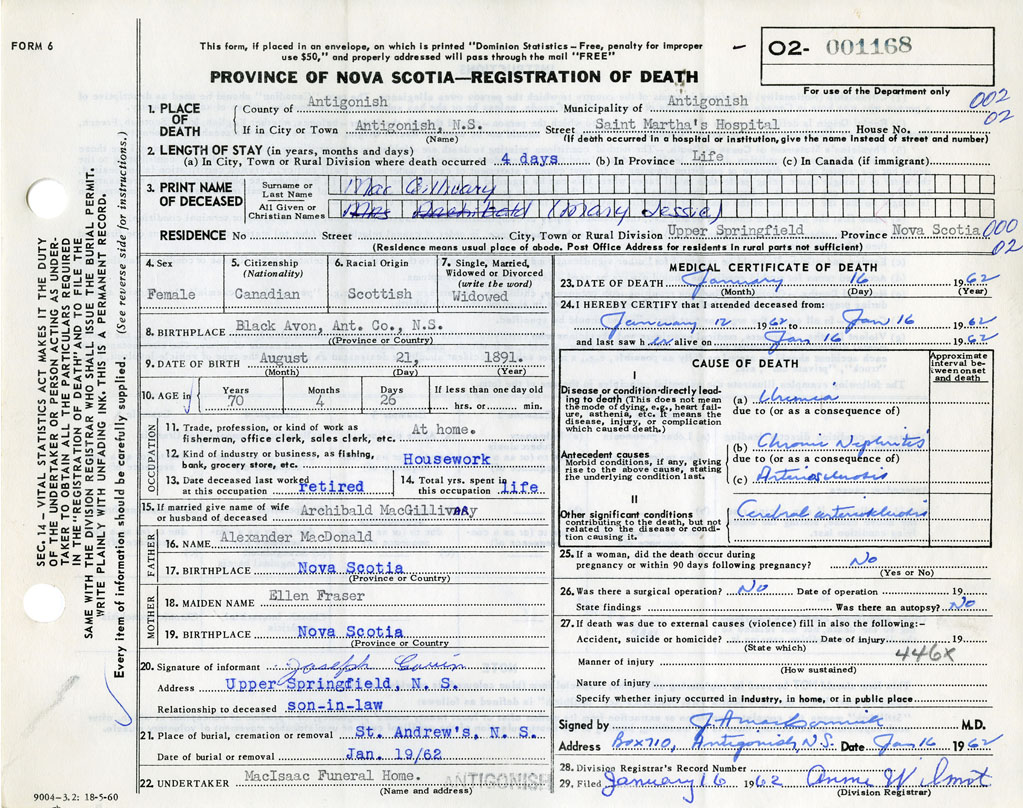 FORM 6
This form, if placed in an envelope, on which is printed "Dominion Statistics – Free, penalty for improper
use $50," and properly addressed will pass through the mail "FREE"
O2- 001168
For use of the Department only
PROVINCE OF NOVA SCOTIA—REGISTRATION OF DEATH
002
02
1. PLACE OF DEATH
County of Antigonish Municipality of Antigonish
If in City or Town Antigonish, N.S. Street Saint Martha's Hospital House No.
(Name) (If death occurred in a hospital or institution, give the name instead of street and number)
2. LENGTH OF STAY (in years, months and days)
(a) In City, Town or Rural Division where death occurred 4 days (b) In Province Life (c) In Canada (if immigrant)
3. PRINT NAME OF DECEASED
Surname or Last Name MacGillivary
All Given or Christian Names Mrs (Mary Jessie)
RESIDENCE No Street City, Town or Rural Division Upper Springfield Province Nova Scotia
000
02
(Residence means usual place of abode. Post Office Address for residents in rural parts not sufficient)
4. Sex
Female
5. Citizenship (Nationality)
Canadian
6. Racial Origin
Scottish
7. Single, Married, Widowed or Divorced (write the word)
Widowed
8. BIRTHPLACE Black Avon, Ant. Co., N.S.
((Province or Country)
9. DATE OF BIRTH August 21, 1891.
(Month) (Day) (Year)
10. AGE in
Years 70
Months 4
Days 26
If less than one day old
hrs. or min.
OCCUPATION
11. Trade, profession, or kind of work as
fisherman, office clerk, sales clerk, etc. At home.
12. Kind of industry or business, as fishing,
bank, grocery store, etc. Housework
13. Date deceased last worked
at this occupation retired
14. Total yrs. spent in
this occupation life
15. If married give name of wife
or husband of deceased Archibald MacGillivary
FATHER
16. NAME Alexander MacDonald
17. BIRTHPLACE Nova Scotia
(Province or Country)
MOTHER
18. MAIDEN NAME Ellen Fraser
19. BIRTHPLACE Nova Scotia
(Province or Country
20. Signature of informant Joseph
Address Upper Springfield, N. S.
Relationship to deceased son-in-law
21. Place of burial, cremation or removal St. Andrew's, N. S.
Date of burial or removal Jan. 19/62
22. UNDERTAKER MacIsaac Funeral Home. ANTIGONISH
(Name and address)
MEDICAL CERTIFICATE OF DEATH
23. DATE OF DEATH January 16 1962
(Month) (Day) (Year)
24. I HEREBY CERTIFY that I attended deceased from:
January 12 1962 to Jan 16 1962
and last saw her alive on Jan 16 1962
CAUSE OF DEATH
Approximate interval between onset and death
I
Disease or condition directly leading to death (This does not mean
the mode of dying, e.g., heart failure, asthenia, etc. It means the
disease, injury, or complication
which caused death.)
(a) Uremia
due to (or as a consequence of)
Antecedent causes
Morbid conditions, if any, giving
rise to the above cause, stating
the underlying condition last.
(b) Chronic Nephritis
due to (or as a consequence of)
(c) Arteriosclerosis
II
Other significant conditions
contributing to the death, but not
related to the disease or condition causing it.
Cerebral arteriosclerosis
25. If a woman, did the death occur during
pregnancy or within 90 days following pregnancy? No
(Yes or No)
26. Was there a surgical operation? No Date of operation 19
State findings Was there an autopsy? No
27. If death was due to external causes (violence) fill in also the following:–
Accident, suicide or homicide? Date of injury 19
(State which)
446X
Manner of injury
(How sustained)
Nature of injury
Specify whether injury occurred in industry, in home, or in public place
Signed by J. A. MacCormick M.D.
Address Box 710, Antigonish, N.S. Date Jan 16 1962
28. Division Registrar's Record Number
29. Filed January 16 1962 Anne Wilmot
(Division Registrar)
SEC. 14—VITAL STATISTICS ACT MAKES IT THE DUTY
OF THE UNDERTAKER OR PERSON ACTING AS UNDERTAKER TO OBTAIN ALL THE PARTICULARS REQUIRED
IN THE "REGISTRATION OF DEATH" AND TO FILE THE
SAME WITH THE DIVISION REGISTRAR WHO SHALL ISSUE THE BURIAL PERMIT.
WRITE PLAINLY WITH UNFADING INK. THIS IS A PERMANENT RECORD.
Every item of information should be carefully supplied. (See reverse side for instructions.)
9004–3.2: 18-5-60